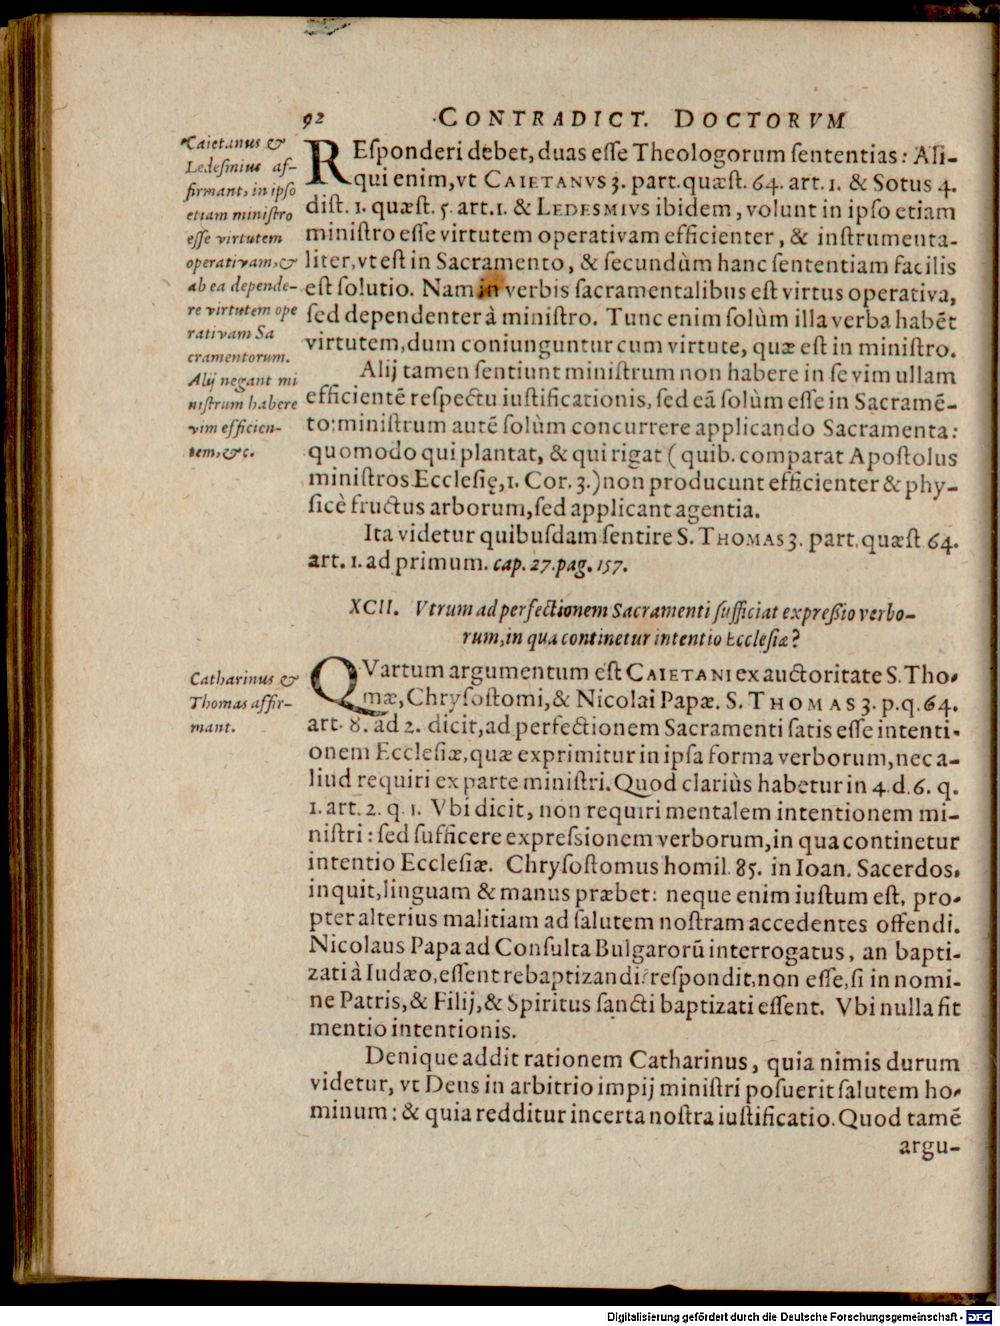 92 CONTRADICT. DOCTORVM
Caietanus &
Ledesmius af-
firmant, in ipso
etiam ministro
esse virtutem
operativam, &
ab ea depende-
re virtutem ope
rativam Sa
cramentorum.
Alij negant mi
nistrum habere
vim efficien-
tem, &c.
REſponderi debet, duas eſſe Theologorum ſententias: Ali-
qui enim, vt CAIETANVS 3. part. quæſt. 64. art. 1. & Sotus 4.
diſt. 1. quæſt. 5. art. 1. & LEDESMIVS ibidem, volunt in ipſo etiam
miniſtro eſſe virtutem operativam efficienter, & inſtrumenta-
liter, vt eſt in Sacramento, & ſecundùm hanc ſententiam facilis
eſt ſolutio. Nam in verbis ſacramentalibus eſt virtus operativa,
ſed dependenter à miniſtro. Tunc enim ſolùm illa verba habẽt
virtutem, dum coniunguntur cum virtute, quæ eſt in miniſtro.
Alij tamen ſentiunt miniſtrum non habere in ſe vim ullam
efficientẽ reſpectu iuſtificationis, ſed eã ſolùm eſſe in Sacramẽ-
to: miniſtrum autẽ ſolùm concurrere applicando Sacramenta:
quomodo qui plantat, & qui rigat (quib. comparat Apoſtolus
miniſtros Eccleſię, 1. Cor. 3.) non producunt efficienter & phy-
ſicè fructus arborum, ſed applicant agentia.
Ita videtur quibuſdam ſentire S. THOMAS 3. part. quæſt 64.
art. 1. ad primum. cap. 27. pag. 157.
XCII. Vtrum ad perfectionem Sacramenti ſufficiat expreßio verbo-
rum, in qua continetur intentio Eccleſiæ?
Catharinus &
Thomas affir-
mant.
QVartum argumentum eſt CAIETANI ex auctoritate S. Tho-
mæ, Chryſoſtomi, & Nicolai Papæ. S. THOMAS 3. p. q. 64.
art. 8. ad 2. dicit, ad perfectionem Sacramenti ſatis eſſe intenti-
onem Eccleſiæ, quæ exprimitur in ipſa forma verborum, nec a-
liud requiri ex parte miniſtri. Quod clariùs habetur in 4. d. 6. q.
1. art. 2. q. 1. Vbi dicit, non requiri mentalem intentionem mi-
niſtri: ſed ſufficere expreſsionem verborum, in qua continetur
intentio Eccleſiæ. Chryſoſtomus homil. 85. in Ioan. Sacerdos,
inquit, linguam & manus præbet: neque enim iuſtum eſt, pro-
pter alterius malitiam ad ſalutem noſtram accedentes offendi.
Nicolaus Papa ad Conſulta Bulgarorũ interrogatus, an bapti-
zati à Iudæo, eſſent rebaptizandi: reſpondit, non eſſe, ſi in nomi-
ne Patris, & Filij, & Spiritus ſancti baptizati eſſent. Vbi nulla fit
mentio intentionis.
Denique addit rationem Catharinus, quia nimis durum
videtur, vt Deus in arbitrio impij miniſtri poſuerit ſalutem ho-
minum; & quia redditur incerta noſtra iuſtificatio. Quod tamẽ
argu-
Digitalisierung gefördert durch die Deutsche Forschungsgemeinschaft - DFG